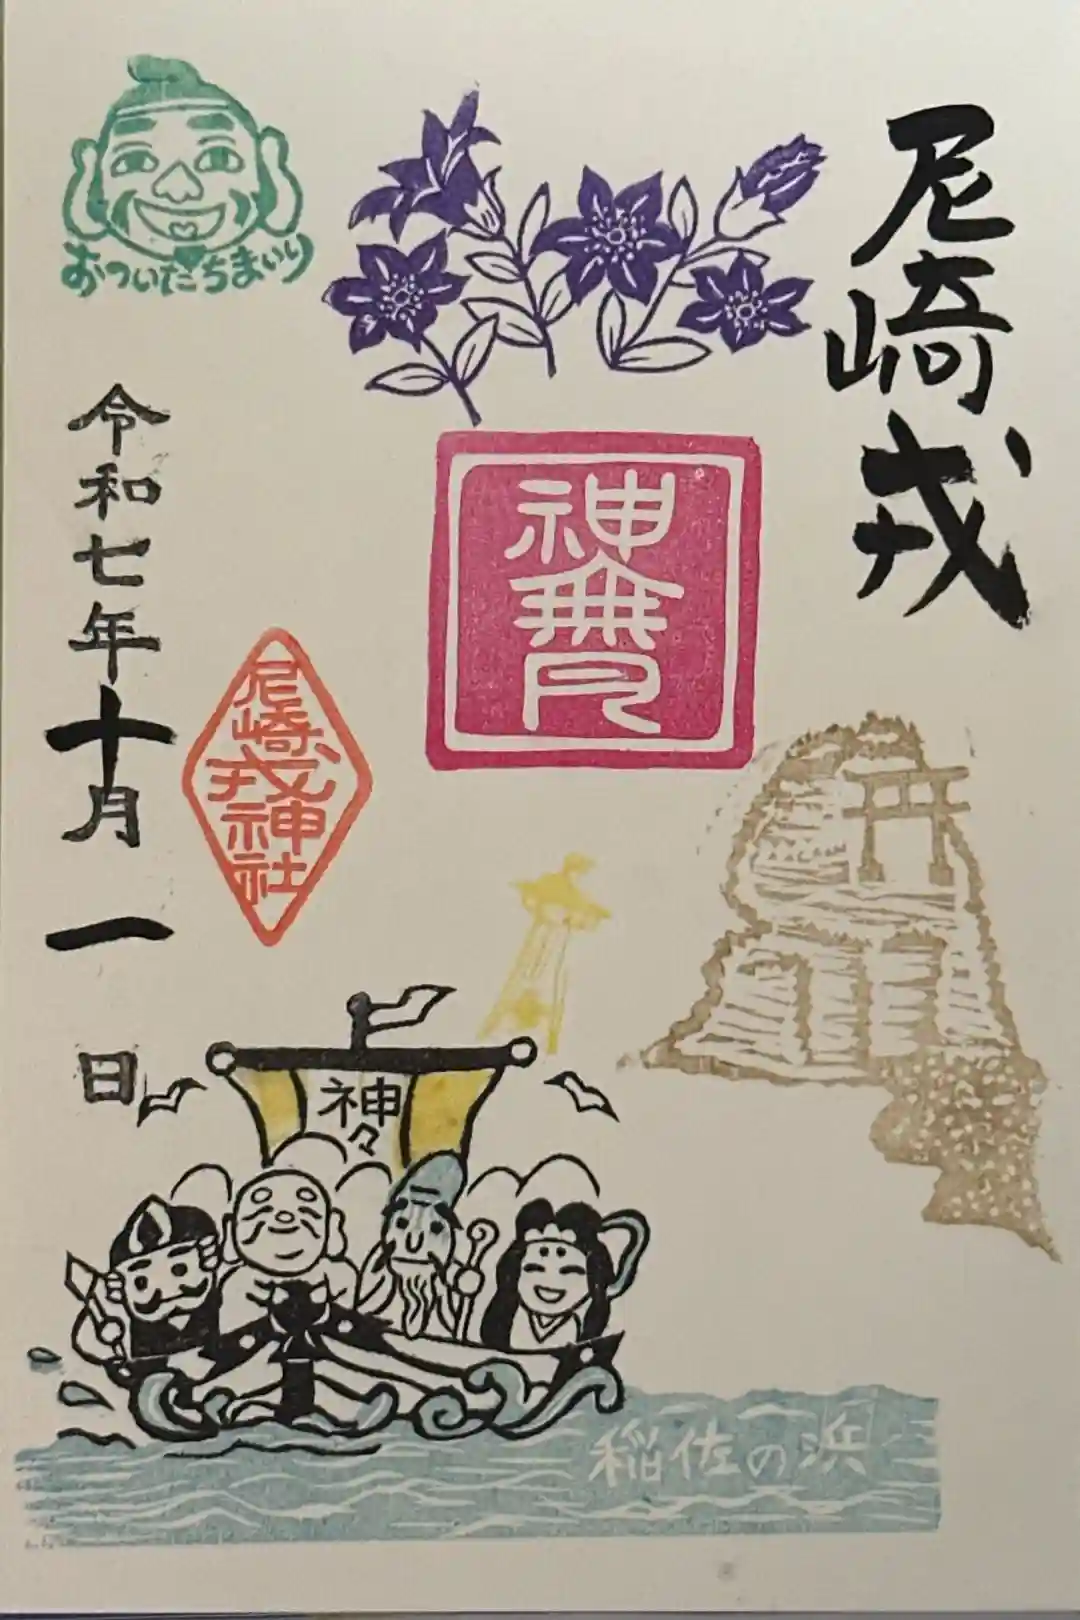 尼崎戎
神無月
おついたちまいり
令和七年十月一日
尼崎戎神社
神々
稲佐の浜